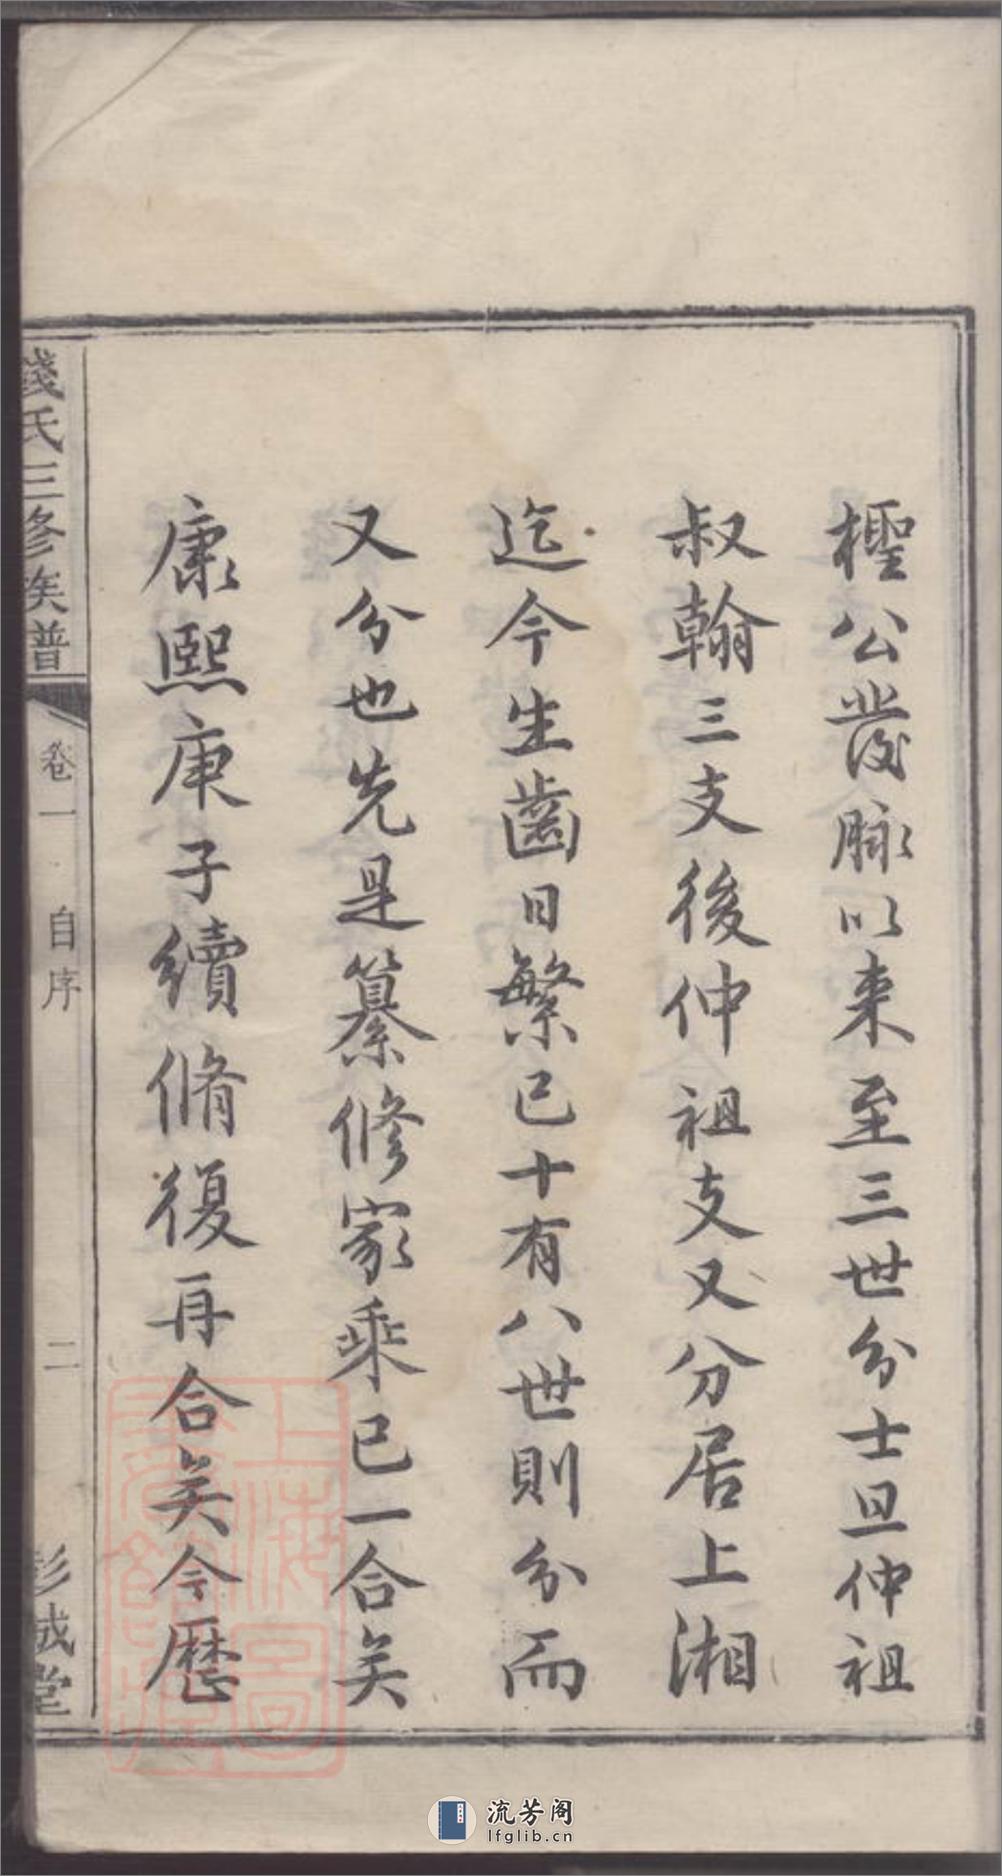 檉公發脉以来至三世分士旦仲祖
叔翰三支後仲祖支又分居上湘
迄今生齒日繁已十有八世則分而
又分也先是纂修家乘已一合矣
康熙庚子續脩復再合矣今歷
錢氏三修族譜
卷一
自序
二
彭城堂
上海圖書館藏
流芳阁
lfglib.cn